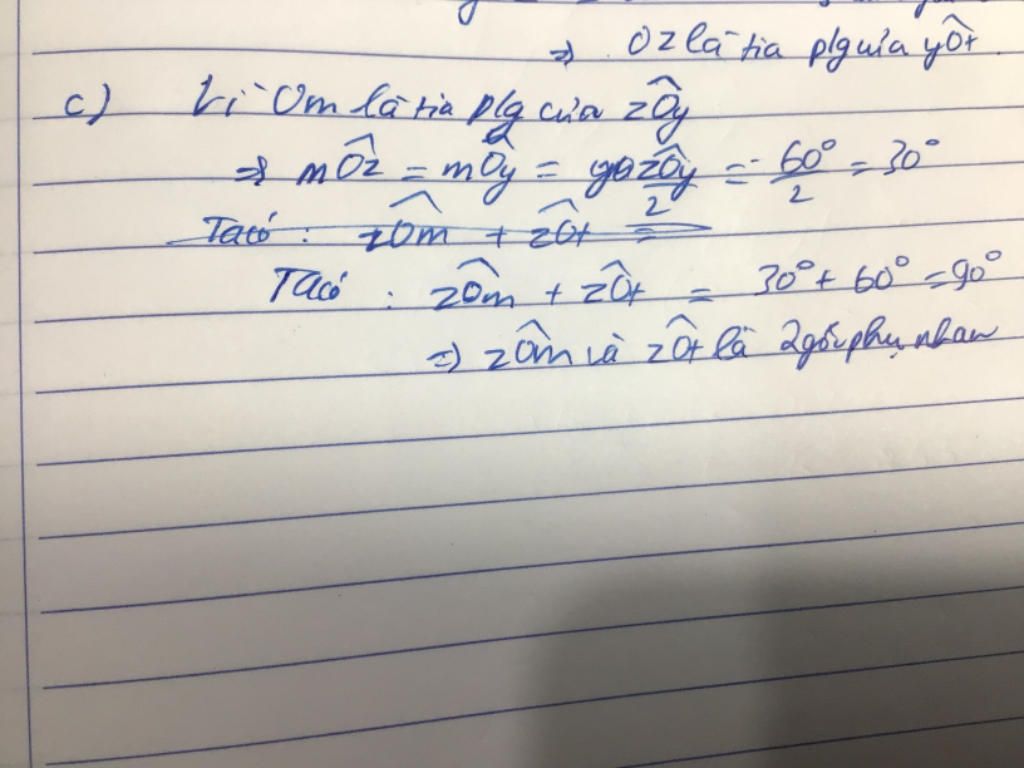 => Oz là tia plg của yÔt
c) Vì Om là tia plg của zÔy
=> mÔz = mÔy = zÔy/2 = 60°/2 = 30°
Ta có : zÔm + zÔt =
Ta có : zÔm + zÔt = 30° + 60° = 90°
=> zÔm và zÔt là 2 góc phụ nhau